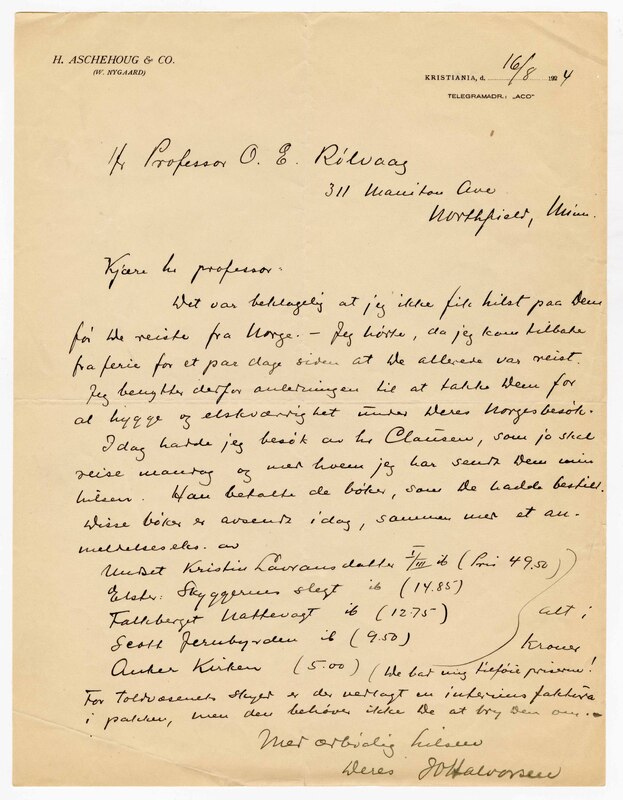 H. ASCHEHOUG & CO.
(W. NYGAARD)
KRISTIANIA, d. 16/8 1924
TELEGRAMADR.: „ACO”
Hr Professor O. E. Rölvaag
311 Manitou Ave
Northfield, Minn.
Kjære hr professor:
Det var beklagelig at jeg ikke fik hilst paa Dem
før De reiste fra Norge. – Jeg hørte, da jeg kom tilbake
fra ferie for et par dage siden at De allerede var reist.
Jeg benytter derfor anledningen til at takke Dem for
al hygge og elskværdighet under Deres Norgesbesök.
I dag hadde jeg besök av hr Clausen, som jo skal
reise mandag og med hvem jeg har sendt Dem min
hilsen. Han betalte de bøker, som De hadde bestilt.
Disse bøker er avsendt idag, sammen med et an-
meldelseseks. av
Undset Kristin Lavransdatter I/III ib (Pris 49.50)
Elster: Skyggernes slegt ib (14.85)
Falkberget Nattevagt ib (12.75)
alt i
Scott Jernbyrden ib (9.50)
Kroner
Anker Kirken (5.00) (De bad mig tilføie priserne!
For Toldvæsenets skyld er der vedlagt en interims faktura
i pakken, men den behøver ikke De at bry Dem om. –
Med ærbødig hilsen
Deres JO Halvorsen